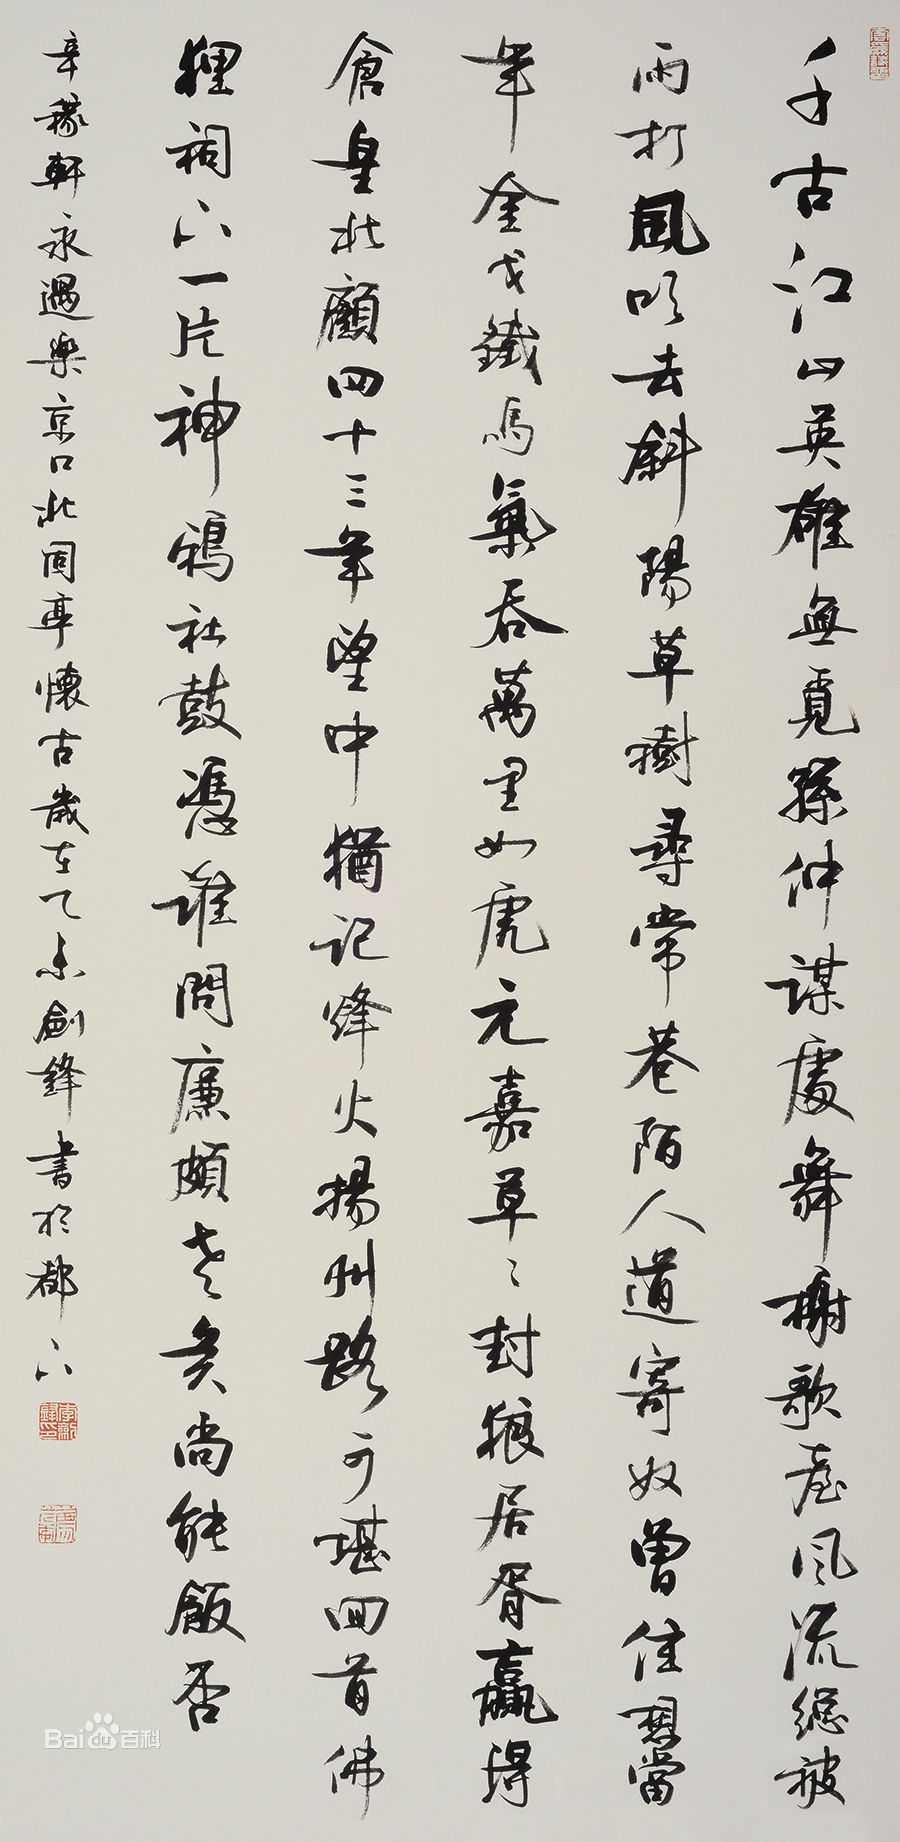 千古江山英雄無覓孫仲謀處舞榭歌臺風流總被
雨打風吹去斜陽草樹尋常巷陌人道寄奴曾住想當
年金戈鐵馬氣吞萬里如虎元嘉草〻封狼居胥贏得
倉皇北顧四十三年望中猶記烽火揚州路可堪回首佛
狸祠下一片神鴉社鼓憑誰問廉頗老矣尚能飯否
辛稼軒永遇樂京口北固亭懷古歲在乙未劍鋒書於都下
Bai百科